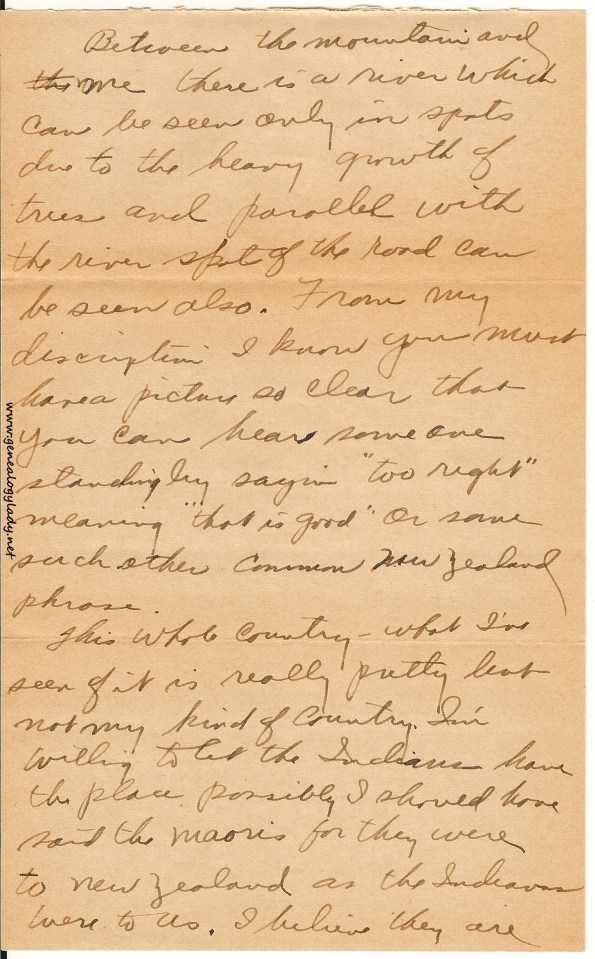 Between the mountain and
the me there is a river which
can be seen only in spots
due to the heavy growth of
trees and parallel with
the river spot of the road can
be seen also. From my
discription I know you must
have a picture so clear that
you can hear some one
standing by sayin "too right"
meaning "that is good" or some
such other common New Zealand
phrase.
This whole country – what I've
seen of it is really pretty but
not my kind of country. I'm
willig to let the Indians have
the place possibly I should have
said the maoris for they were
to new Zealand as the Indians
were to us. I believe they are
www.genealogylady.net